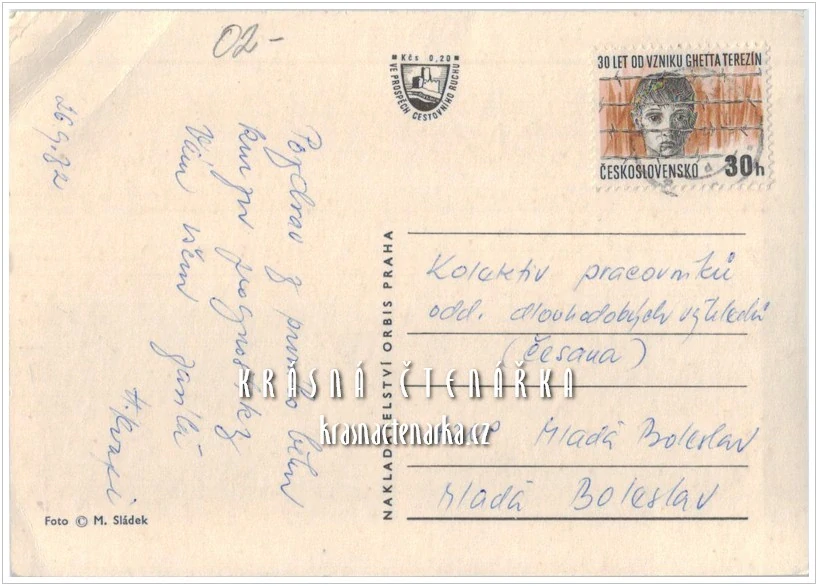 02-
Kčs 0,20
VE PROSPĚCH CESTOVNÍHO RUCHU
30 LET OD VZNIKU GHETTA TEREZÍN
ČESKOSLOVENSKO 30h
26.9.72
Pozdrav z prvního běhu
kurzu prognostiky
Vám všem zasílá
NAKLADATELSTVÍ ORBIS PRAHA
Kolektiv pracovníků
odd. dlouhodobých výhledů
(Česana)
Mladá Boleslav
Mladá Boleslav
KRÁSNÁ ČTENÁŘKA
krasnactenarka.cz
Foto © M. Sládek